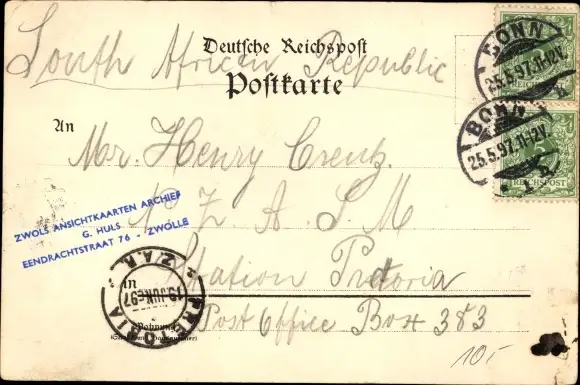 Deutsche Reichspost
South African Republic
Postkarte
An
Mr. Henry Creutz.
Z A S M
Station Pretoria
Post Office Box 383
BONN
25.5.97.11-12V.
BONN
25.5.97.11-12V.
REICHSPOST
REICHSPOST
ZWOLS ANSICHTKAARTEN ARCHIEF
G. HULS
EENDRACHTSTRAAT 76 - ZWOLLE
PRETORIA
Z.A.R.
19 JUN 97
in
Wohnung
10,-